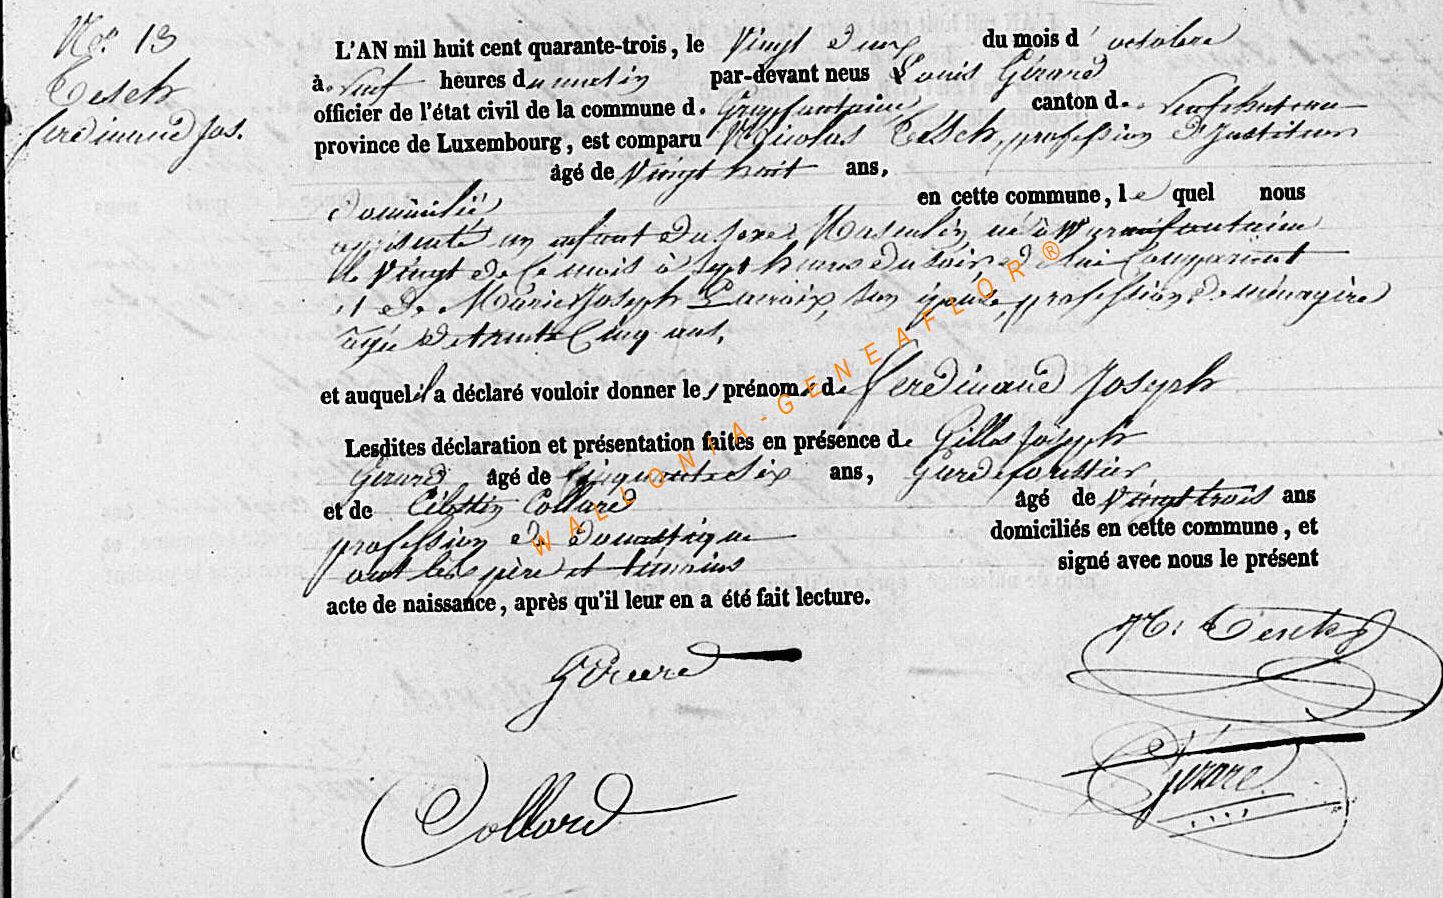 No. 13
Tesch
ferdinand Jos.
L'AN mil huit cent quarante-trois, le Vingt deux du mois d' octobre
à neuf heures du matin par-devant nous Louis Gérard
officier de l'état civil de la commune de Grapfontaine canton de Neufchateau
province de Luxembourg, est comparu Nicolas Tesch, profession d'Instituteur
âgé de Vingt huit ans,
domicilié en cette commune, le quel nous
a présenté un enfant du sexe Masculin, né à Warmifontaine
le Vingt de ce mois à sept heures du soir de lui Comparant
et de Marie Joseph Lacroix, son épouse, profession de ménagère
agée de trente Cinq ans,
et auquel il a déclaré vouloir donner les prénoms de Ferdinand Joseph
Lesdites déclaration et présentation faites en présence de Gilles Joseph
Gérard âgé de Cinquante six ans, Garde forestier
et de Célestin Collard âgé de Vingt trois ans
profession de domestique domiciliés en cette commune, et
ont les père et témoins signé avec nous le présent
acte de naissance, après qu'il leur en a été fait lecture.
N. Tesch
Gérard
Gérard
Collard
WALLONIA-GENEAFLOR®